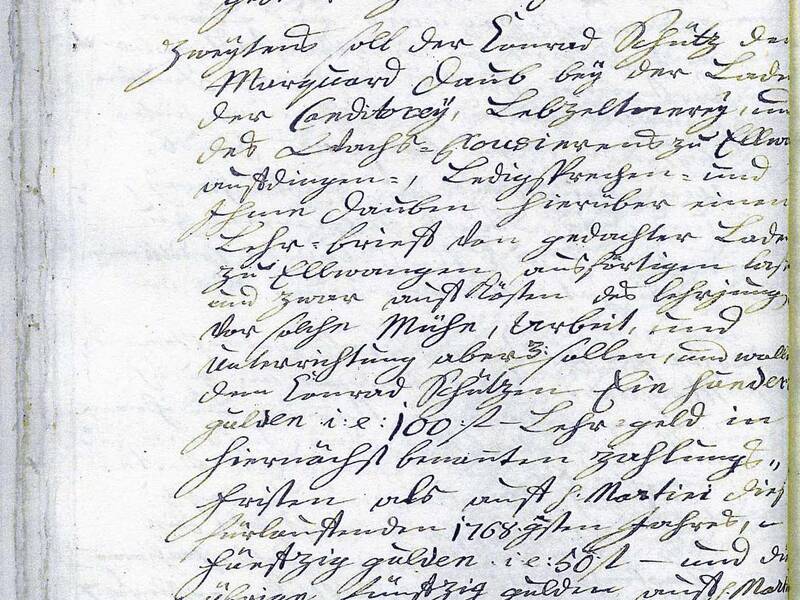 Zweytens soll der Conrad Schütz den
Marquard Daub bey der Lade
der Conditorey, Lebzeltnerey, und
des Wachs-Pousierens zu Ellwa
aufdingen-, Ledigsprechen- und
Ihme Dauben hierüber einen
Lehr-brieff von gedachter Lade
zu Ellwangen ausförtigen lass
und zwar auff Kösten des Lehrjung
Vor solche Mühe, Arbeit, und
Unterrichtung aber 3: sollen, und wolle
dem Conrad Schützen Ein hundert
gulden i: e: 100 f – Lehr-geld in
hiernächst benannten Zahlungs-
fristen als auff S. Martini dies
fürlauffenden 1768.gsten Jahres,
fünffzig gulden i: e: 50 f – und di
übrige fünffzig gulden auff S. Mart